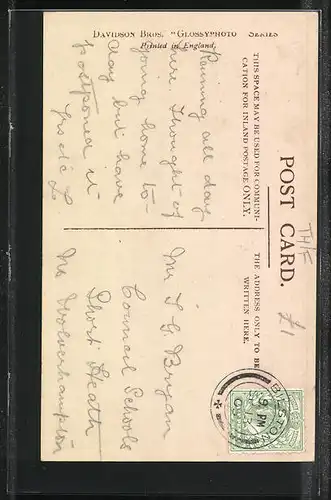 DAVIDSON BROS. "GLOSSYPHOTO" SERIES
Printed in England.
POST CARD.
THIS SPACE MAY BE USED FOR COMMUNI-
CATION FOR INLAND POSTAGE ONLY.
THE ADDRESS ONLY TO BE
WRITTEN HERE.
Raining all day
here. Thought of
going home to-
day but have
postponed it
Mr T G Bryan
Council Schools
Short Heath
Nr Wolverhampton
£1
BILSTON
9 PM